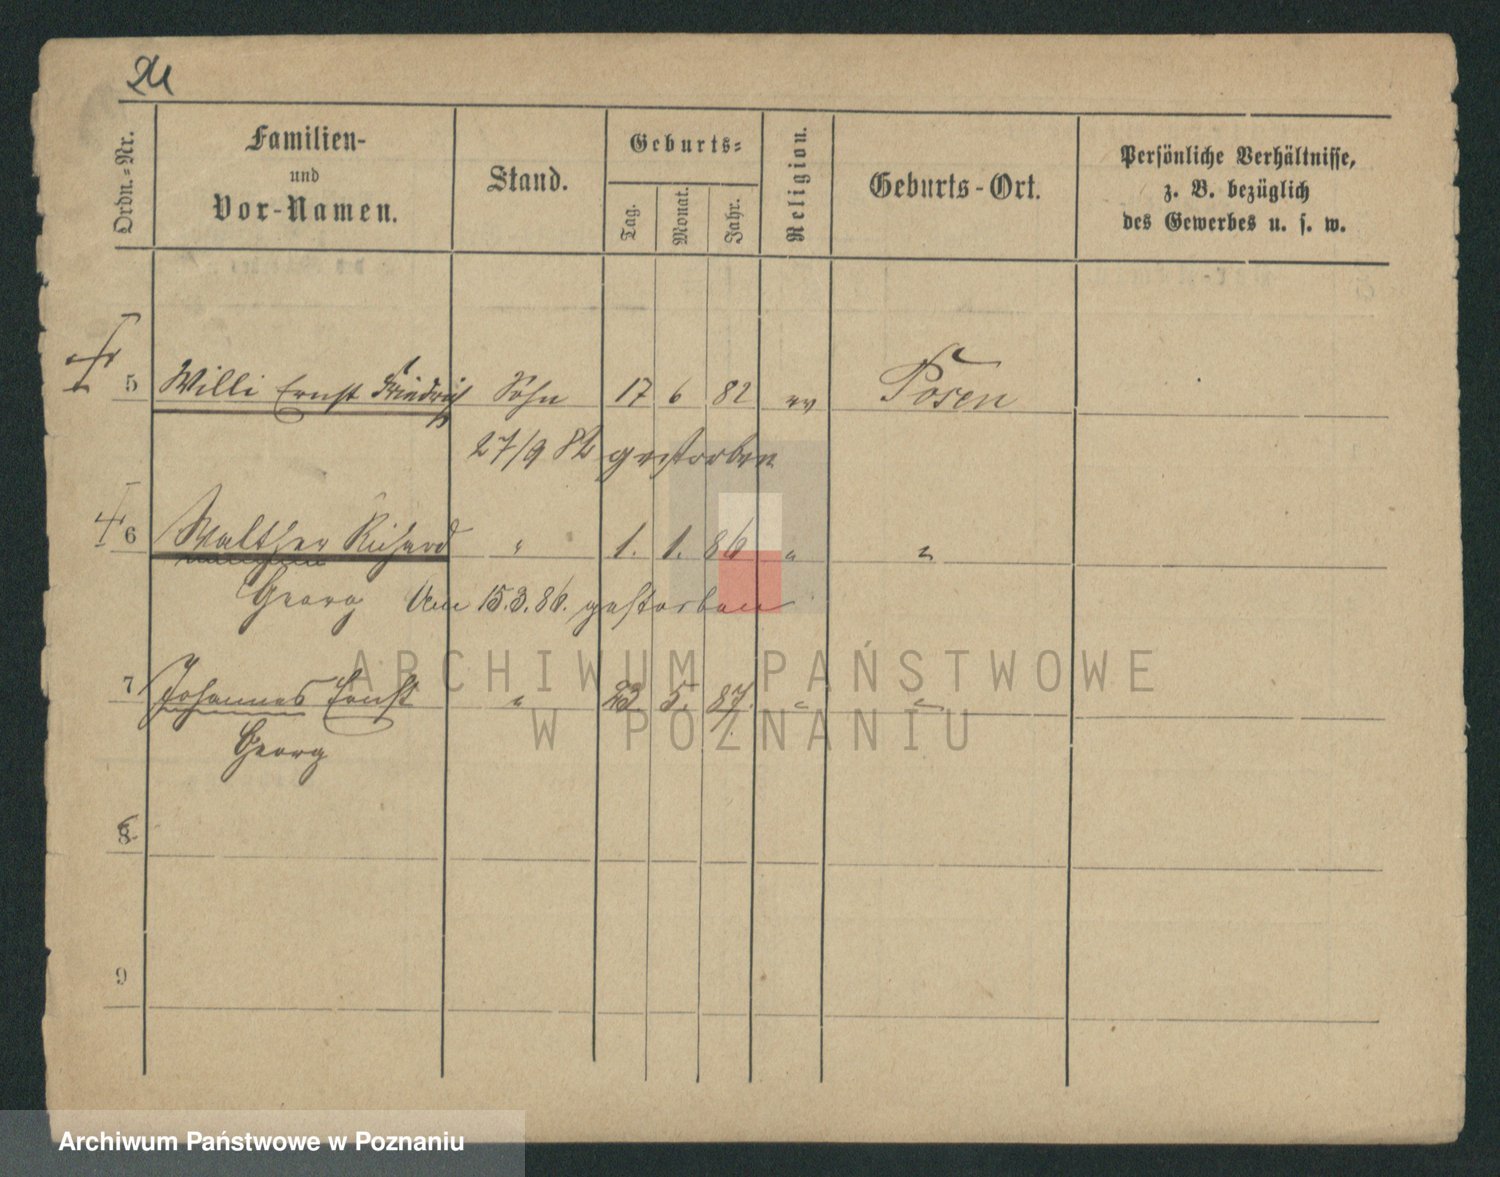 Ordn.-Nr.
Familien-
und
Vor-Namen.
Stand.
Geburts-
Tag.
Monat.
Jahr.
Religion.
Geburts-Ort.
Persönliche Verhältnisse,
z. B. bezüglich
des Gewerbes u. s. w.
5 Willi Ernst Friedrich Sohn 17 6 82 ev Posen
27/9 82 gestorben
6 Walther Richard " 1. 1. 86 " "
Georg Am 15.3.86. gestorben
7 Johannes Ernst " 23 5. 87. " "
Georg
8
9
ARCHIWUM PAŃSTWOWE
W POZNANIU
Archiwum Państwowe w Poznaniu